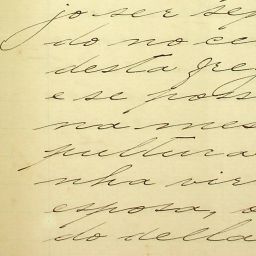 jo ser sep
do no ce
desta Freg
e se poss
na mes
pultura
nha vir
esposa, o
do della